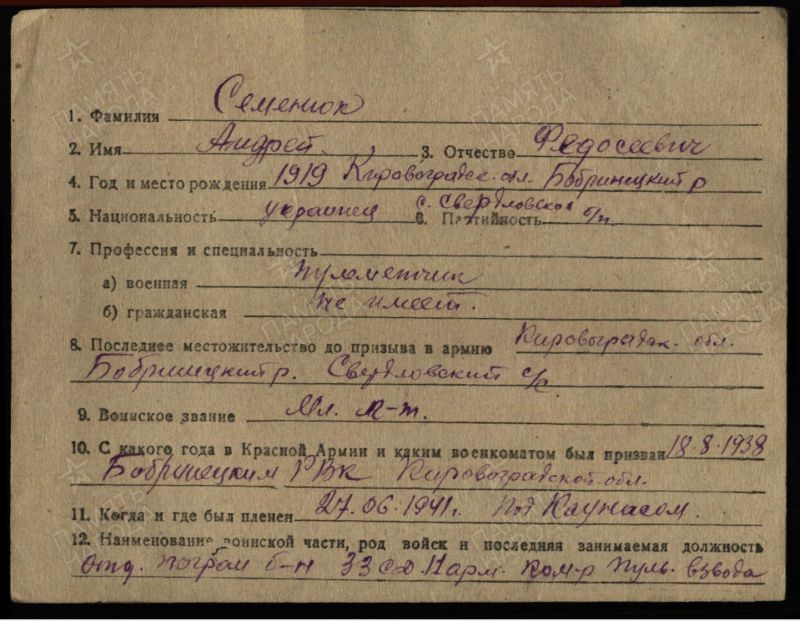 1. Фамилия Семенюк
2. Имя Андрей 3. Отчество Федосеевич
4. Год и место рождения 1919 Кировоградск. обл. Бобринецкий р
с. Свердловское
5. Национальность украинец 6. Партийность б/п.
7. Профессия и специальность
а) военная пулеметчик
б) гражданская не имеет.
8. Последнее местожительство до призыва в армию Кировоградск. обл.
Бобринецкий р. Свердловский с/с
9. Воинское звание Мл. л-т.
10. С какого года в Красной Армии и каким военкоматом был призван 18.8.1938
Бобринецким РВК Кировоградской обл.
11. Когда и где был пленен 27.06.1941г. под Каунасом.
12. Наименование воинской части, род войск и последняя занимаемая должность
Отд. 33 сд 11 арм. ком-р пуль. взвода
ПАМЯТЬ НАРОДА